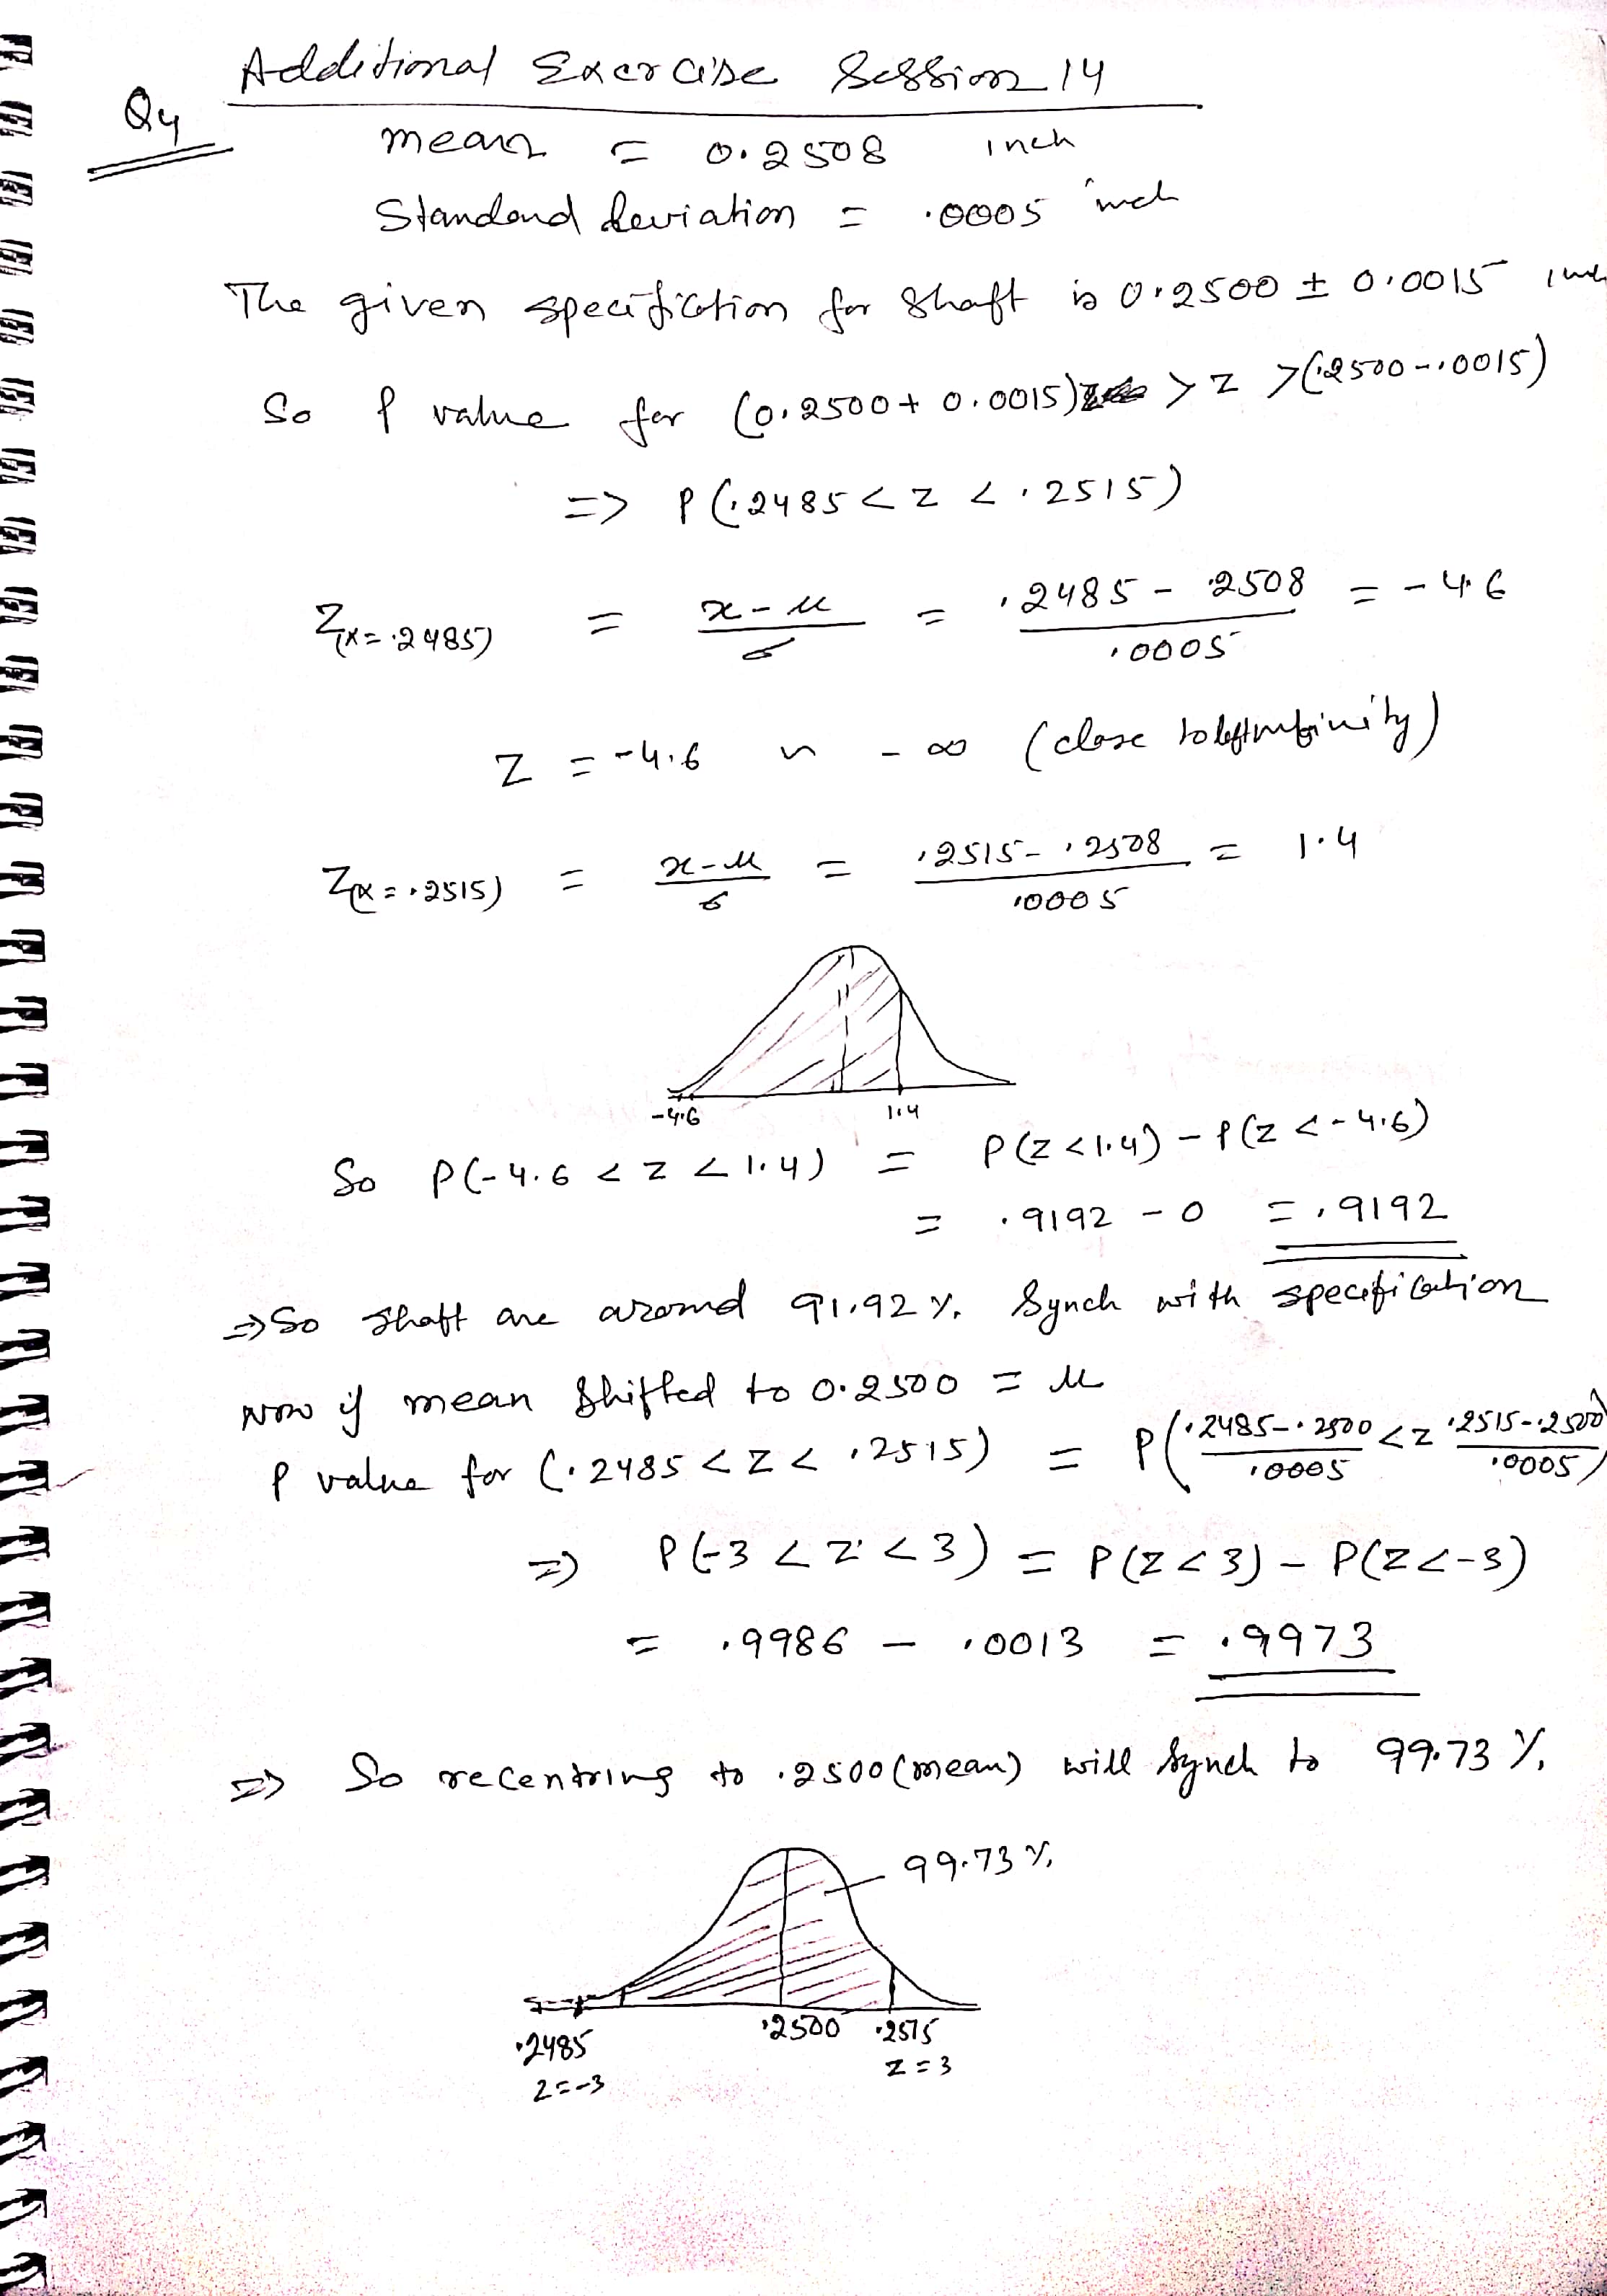 Additional Exercise Session 14
Q4
mean = 0.2508 inch
Standard deviation = .0005 inch
The given specifiction for shaft is 0.2500 ± 0.0015 inch
So P value for (0.2500 + 0.0015) > z > (.2500 - .0015)
=> P(.2485 < z < .2515)
Z(x = .2485) = x - μ / σ = .2485 - .2508 / .0005 = - 4.6
Z = -4.6 ~ - ∞ (close to left infinity)
Z(x = .2515) = x - μ / σ = .2515 - .2508 / .0005 = 1.4
-4.6 1.4
So P(-4.6 < z < 1.4) = P(z < 1.4) - P(z < -4.6)
= .9192 - 0 = .9192
=> So shaft are around 91.92 % Synch with specification
Now if mean shifted to 0.2500 = μ
P value for (.2485 < z < .2515) = P(.2485 - .2500 / .0005 < z .2515 - .2500 / .0005)
=> P(-3 < z < 3) = P(z < 3) - P(z < -3)
= .9986 - .0013 = .9973
=> So recentring to .2500 (mean) will synch to 99.73 %
99.73 %
.2485 .2500 .2515
z = -3 z = 3